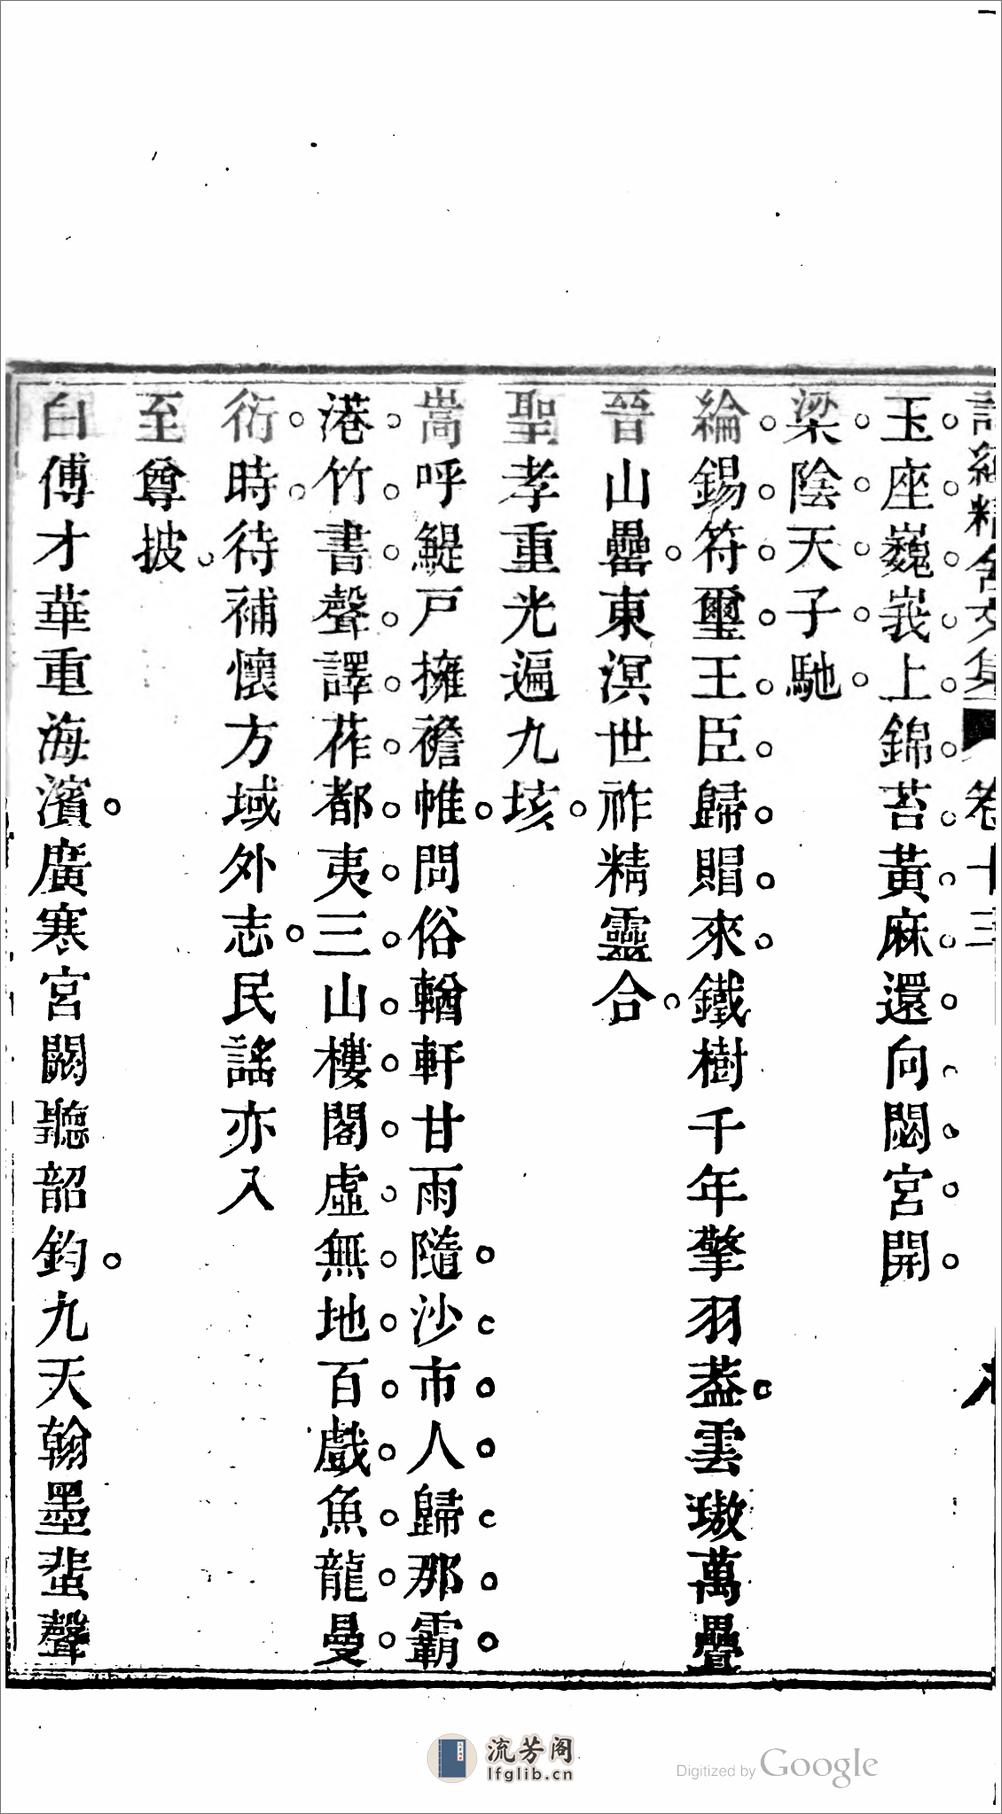 詁經精舍文集 卷十三
玉座巍峩上錦苔黃麻還向閟宮開
梁陰天子馳
綸錫符璽王臣歸賵來鐵樹千年擎羽葢雲璈萬疊
晉山罍東溟世祚精靈合
聖孝重光遍九垓
嵩呼鯷戸擁襜帷問俗輶軒甘雨隨沙市人歸那霸
港竹書聲譯莋都夷三山樓閣虛無地百戲魚龍曼
衍時待補懷方域外志民謠亦入
至尊披
白傅才華重海濱廣寒宮闕聽韶鈞九天翰墨蜚聲
流芳阁
lfglib.cn
Digitized by Google